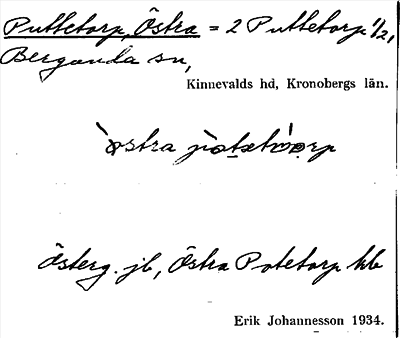 Puttetorp, Östra = 2 Puttetorp 1/2,
Bergunda sn,
Kinnevalds hd, Kronobergs län.
östra
österg. jb, Östra Potetorp kb
Erik Johannesson 1934.